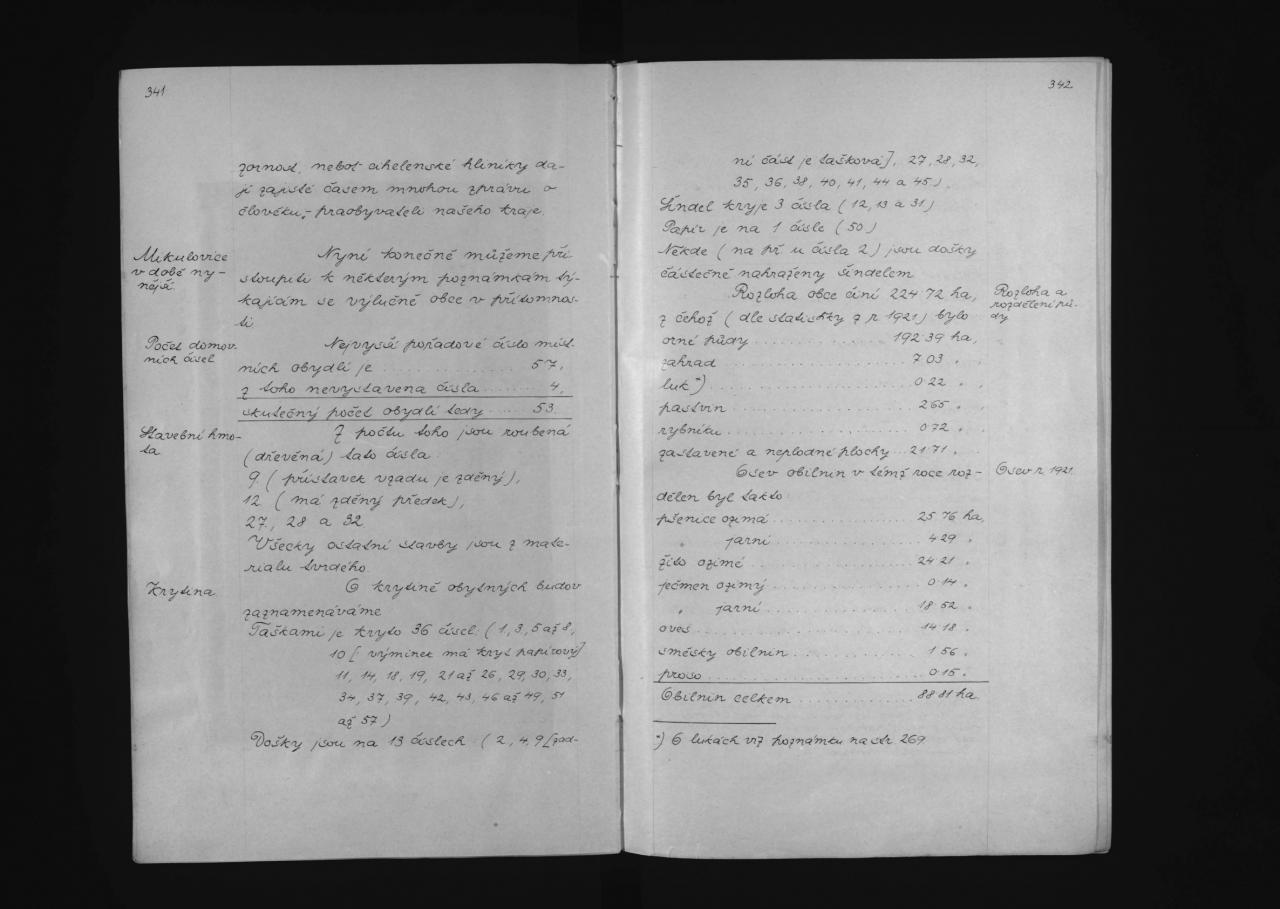 341
zornost, neboť cihelenské hliníky da-
jí zajisté časem mnohou zprávu o
člověku,- praobyvateli našeho kraje.
Mikulovice
v době ny-
nější.
Nyní konečně můžeme při-
stoupiti k některým poznámkám tý-
kajícím se výlučně obce v přítomnos-
ti.
Počet domov-
ních čísel
Nejvyšší pořadové číslo míst-
ních obydlí je .............. 57,
z toho nevystavena čísla ....... 4,
skutečný počet obydlí tedy ..... 53.
Stavební hmo-
ta
Z počtu toho jsou roubená
(dřevěná) tato čísla:
9 (přístavek vzadu je zděný),
12 (má zděný předek),
27, 28 a 32.
Všecky ostatní stavby jsou z mate-
rialu tvrdého.
Krytina
O krytině obytných budov
zaznamenáváme:
Taškami je kryto 36 čísel: (1, 3, 5 až 8,
10 [výminek má kryt papírový]
11, 14, 18, 19, 21 až 26, 29, 30, 33,
34, 37, 39, 42, 43, 46 až 49, 51
až 57)
Došky jsou na 13 číslech: (2, 4, 9 [zad-
342
ní část je tašková], 27, 28, 32,
35, 36, 38, 40, 41, 44 a 45).
Šindel kryje 3 čísla (12, 13 a 31)
Papír je na 1 čísle (50)
Někde (na př. u čísla 2) jsou došky
částečně nahraženy šindelem.
Rozloha obce činí 224.72 ha,
z čehož (dle statistiky z r. 1921) bylo
Rozloha a
rozdělení pů-
dy
orné půdy ................ 192.39 ha,
zahrad .................... 7.03 "
luk*) ..................... 0.22 "
pastvin ................... 2.65 "
rybníku ................... 0.72 "
zastavené a neplodné plochy .. 21.71 "
Osev obilnin v témž roce roz-
dělen byl takto:
Osev r. 1921.
pšenice ozimá .............. 25.76 ha,
" jarní .................... 4.29 "
žito ozimé ................. 24.21 "
ječmen ozimý ............... 0.14 "
" jarní .................... 18.52 "
oves ....................... 14.18 "
směsky obilnin ............. 1.56 "
proso ...................... 0.15 "
Obilnin celkem ............. 88.81 ha.
*) O lukách viz poznámku na str. 269.